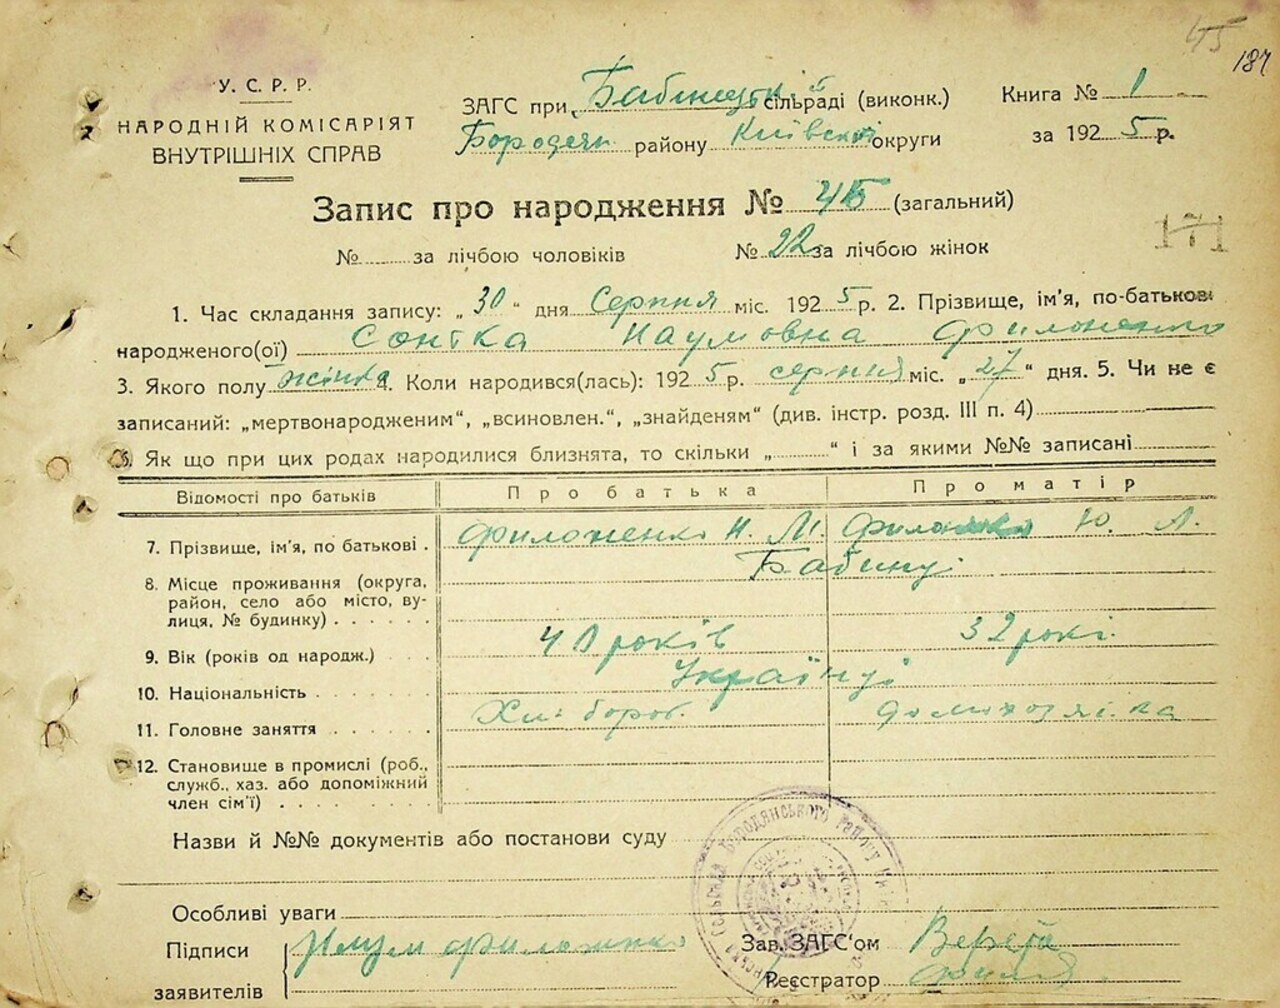 45
187
У. С. Р. Р.
НАРОДНІЙ КОМІСАРІЯТ
ВНУТРІШНІХ СПРАВ
ЗАГС при Бабинецькій сільраді (виконк.)
Бородян. району Київської округи
Книга № 1
за 1925 р.
Запис про народження № 45 (загальний)
171
№ за лічбою чоловіків № 22 за лічбою жінок
1. Час складання запису: „30“ дня Серпня міс. 1925 р. 2. Прізвище, ім'я, по-батькові
народженого(ої) Наумовна Филоненко
3. Якого полу жінка 4. Коли народився(лась): 1925 р. серпня міс. „27“ дня. 5. Чи не є
записаний: „мертвонародженим“, „всиновлен.“, „знайденям“ (див. інстр. розд. III п. 4)
6. Як що при цих родах народилися близнята, то скільки „ “ і за якими №№ записані
Відомості про батьків Про батька Про матір
7. Прізвище, ім'я, по батькові . Филоненко Н. М. Ю. Л.
8. Місце проживання (округа, Бабинці
район, село або місто, ву-
лиця, № будинку) . . . . . .
9. Вік (років од народж.) . . років 32 рокі.
10. Національність . . . . . . Українці
11. Головне заняття . . . . . . Хлібороб. домохозяіка
12. Становище в промислі (роб.,
служб., хаз. або допоміжний
член сім'ї) . . . . . . . .
Назви й №№ документів або постанови суду
Бородянського району
Особливі уваги
Підписи Наум Филоненко Зав. ЗАГС'ом
заявителів Реєстратор